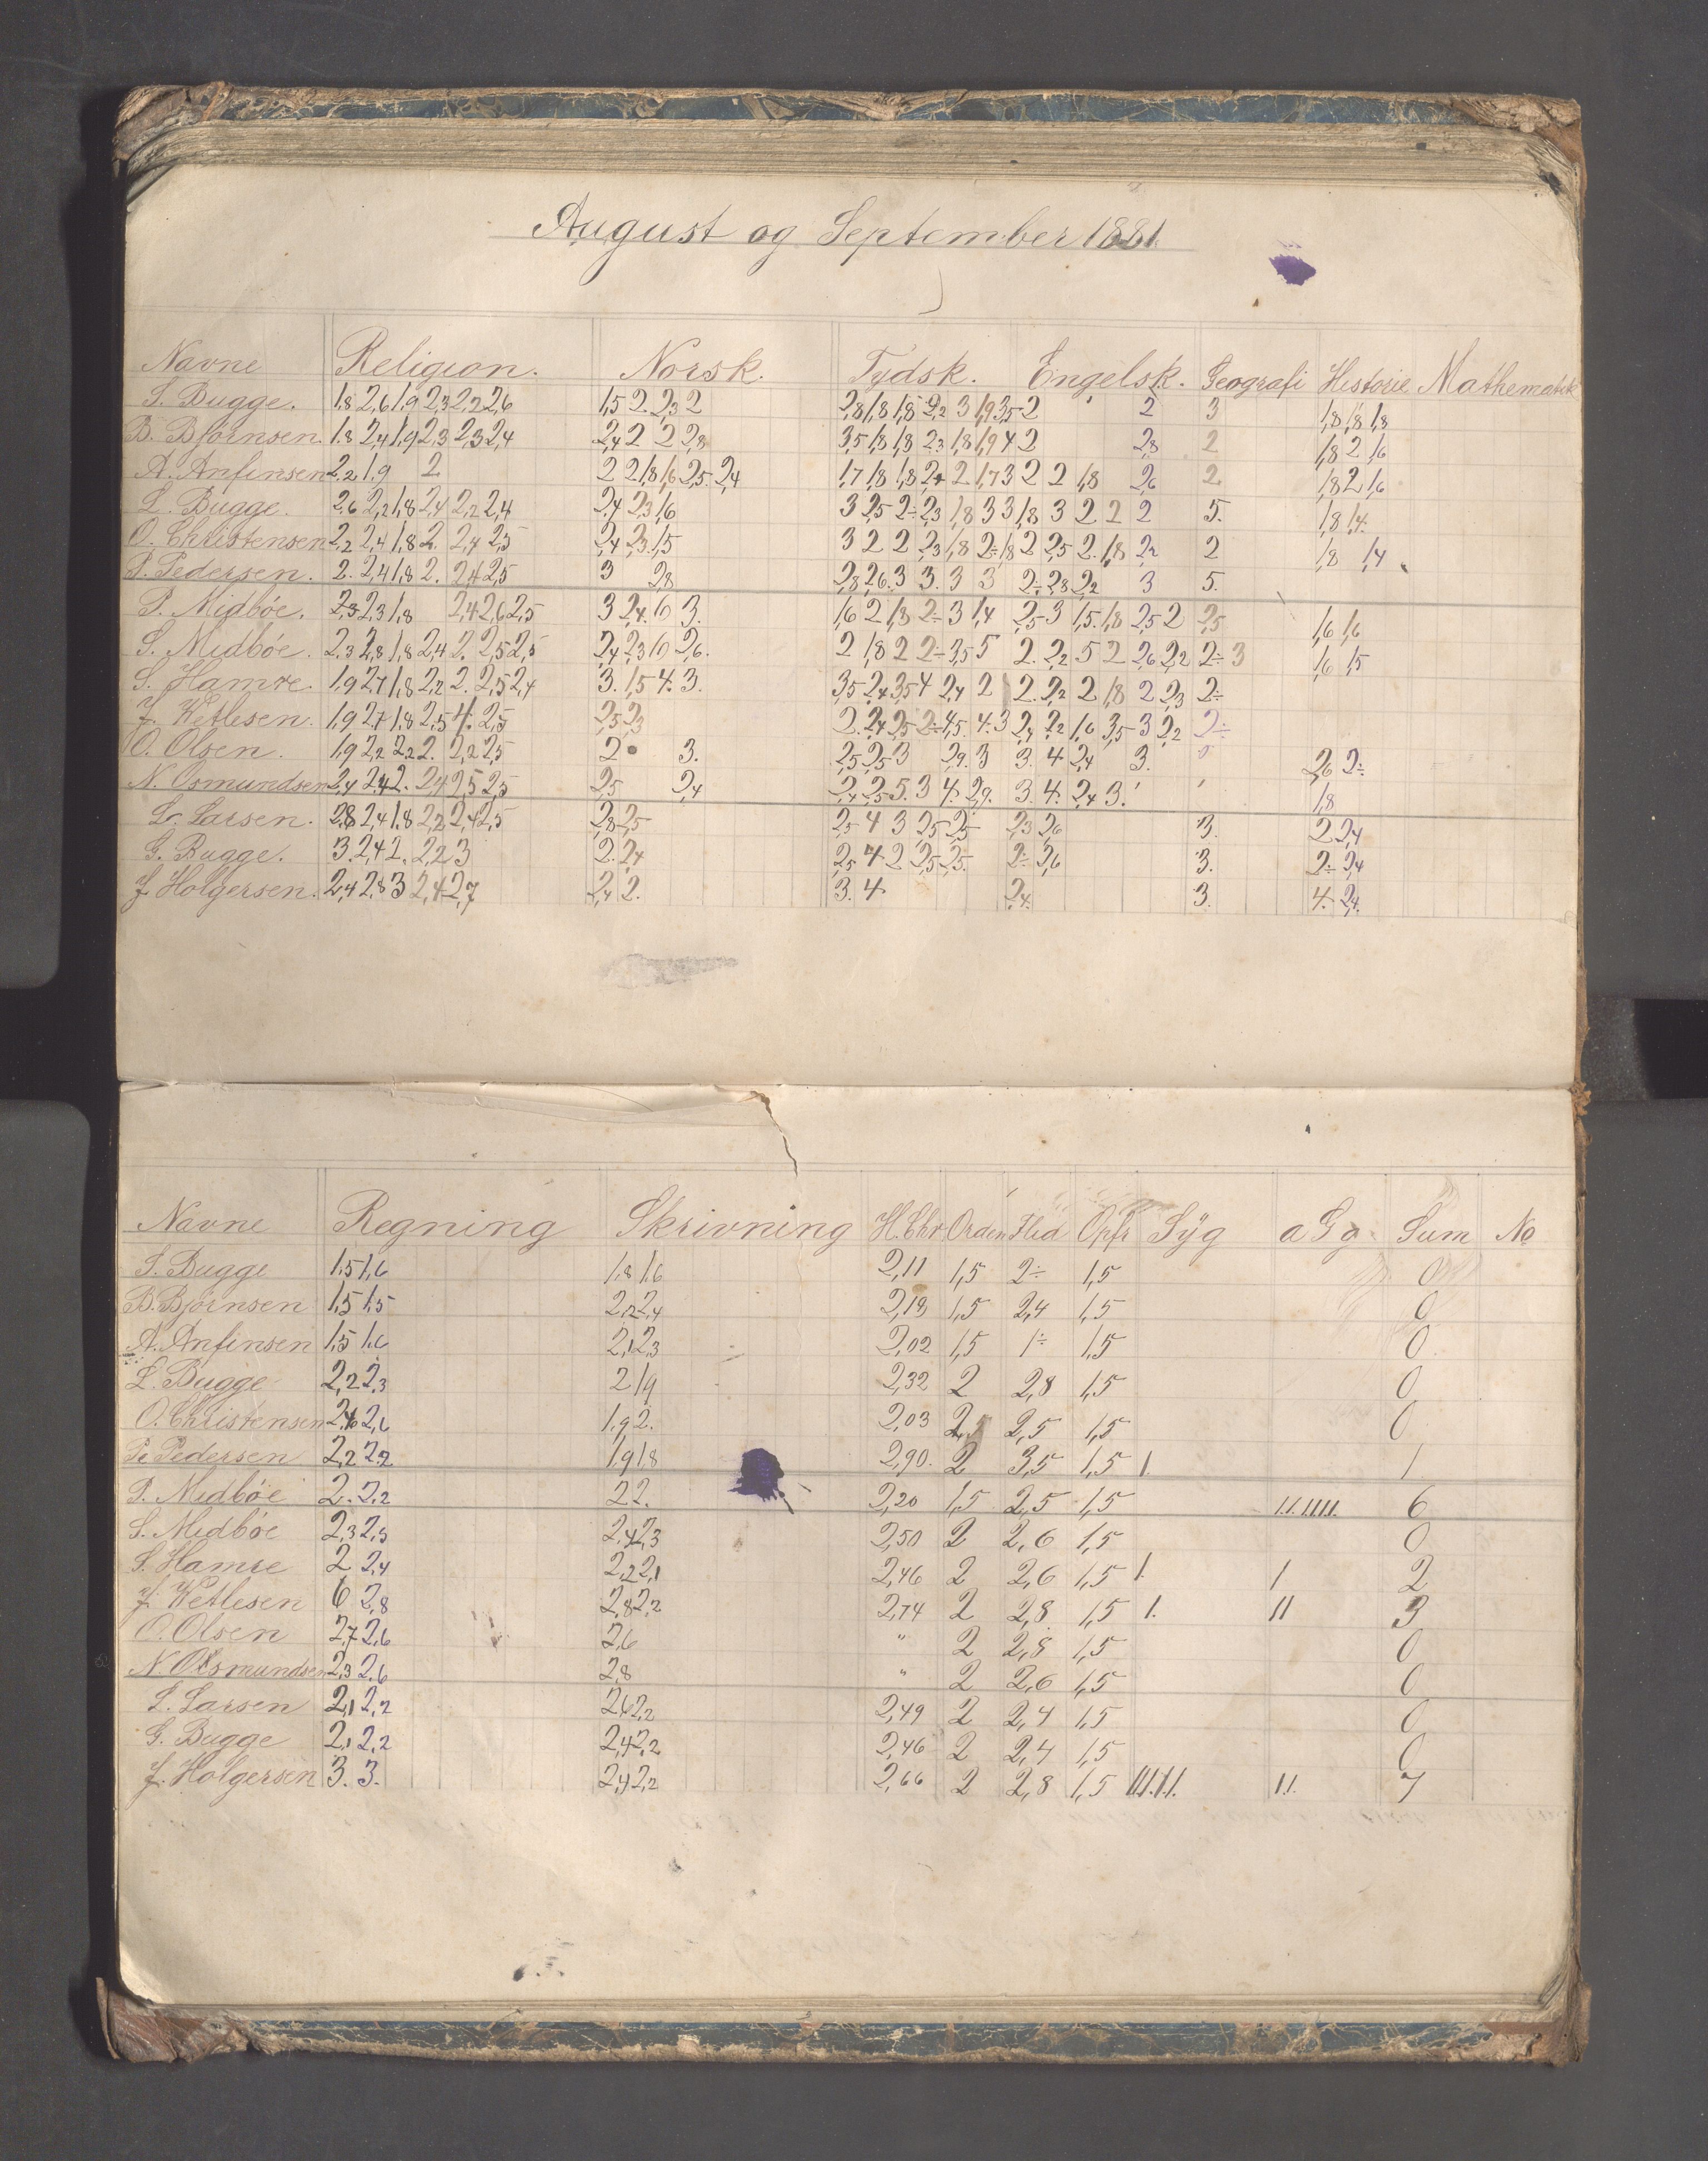 August og September 1881.
Navne Religion. Norsk. Tydsk. Engelsk. Geografi Historie Mathematik
S. Bugge. 1,8 2,6 1,9 2,3 2,2 2,6 1,5 2. 2,3 2 2,8 1,8 1,8 2,2 3 1,9 3,5 2 2 3 1,8 1,8 1,8
B. Bjørnsen. 1,8 2,4 1,9 2,3 2,3 2,4 2,4 2 2 2,8 3,5 1,8 1,8 2,3 1,8 1,9 4 2 2,8 2 1,8 2 1,6
A. Anfinsen 2,2 1,9 2 2 2 1,8 1,6 2,5. 2,4 1,7 1,8 1,8 2,4 2 1,7 3 2 2 1,8 2,6 2 1,8 2 1,6
L. Bugge. 2,6 2,2 1,8 2,4 2,2 2,4 2,4 2,3 1,6 3 2,5 2÷ 2,3 1,8 3 3 1,8 3 2 2 2 5. 1,8 1,4.
O. Christensen 2,2 2,4 1,8 2. 2,4 2,5 2,4 2,3. 1,5 3 2 2 2,3 1,8 2÷ 1,8 2 2,5 2. 1,8 2 1,8 1,4
P. Pedersen. 2. 2,4 1,8 2. 2,4 2,5 3 2,8 2,8 2,6. 3 3. 3 3 2÷ 2,8 2,2 3 5.
P. Midbøe. 2,3 2,3 1,8 2,4 2,6 2,5 3 2,4. 1,6 3. 1,6 2 1,8 2÷ 3 1,4 2,5 3 1,5. 1,8 2,5 2 2,5 1,6 1,6
S. Midbøe. 2,3 2,8 1,8 2,4 2. 2,5 2,5 2,4 2,3 1,6 2,6. 2 1,8 2 2÷ 3,5 5 2. 2,2 5 2 2,6 2,2 2÷ 3 1,6 1,5
S. Hamre. 1,9 2,7 1,8 2,2 2. 2,5 2,4 3. 1,5 4. 3. 3,5 2,4 3,5 4 2,4 2 2. 2,2 2 1,8 2 2,3 2÷
J. Wetlesen. 1,9 2,7 1,8 2,5 4. 2,5 2,5 2,3 2. 2,4 2,5 2÷ 4,5. 4. 3 2,4 2,2 1,6 3,5 3 2,2 2÷
O. Olsen. 1,9 2,2 2,2 2. 2,2 2,5 2 3. 2,5 2,5 3 2,9. 3 3. 4 2,4 3. 2,6 2÷
N. Osmundsen 2,4 2,4 2. 2,4 2,5 2,5 2,5 2,4 2,4 2,5 5. 3 4. 2,9. 3. 4. 2,4 3. 1,8
L. Larsen. 2,8 2,4 1,8 2,2 2,4 2,5 2,8 2,5 2,5 4 3 2,5 2,5 2,3 2,6 3. 2 2,4
G. Bugge. 3. 2,4 2. 2,2 3 2. 2,4 2,5 4 2 2,5 2,5. 2÷ 2,6 3. 2÷ 2,4
J. Holgersen. 2,4 2,8 3 2,4 2,7 2,4 2. 3. 4. 2,4. 3. 4. 2,4.
Navne Regning Skrivning H.Chr Orden Flid Opfr Syg a G g Sum No
S. Bugge 1,5 1,6 1,8 1,6 2,11 1,5 2÷ 1,5 0
B. Bjørnsen 1,5 1,5 2,2 2,4 2,18 1,5 2,4 1,5 0
A. Anfinsen 1,5 1,6 2,1 2,3 2,02 1,5 1÷ 1,5 0
L. Bugge 2,2 2,3 2 1,9 2,32 2 2,8 1,5 0
O. Christensen 2,6 1,9 2. 2,03 2,5 2,5 1,5 0
P. Pedersen 2,2 2,2 1,9 1,8 2,90. 2 3,5 1,5 1. 1
P. Midbøe 2. 2,2 2 2. 2,20 1,5 2,5 1,5 11.1111. 6
S. Midbøe 2,3 2,5 2,4 2,3 2,50 2 2,6 1,5 0
S. Hamre 2 2,4 2,2 2,1 2,46 2 2,6 1,5 1. 1 2
J. Wetlesen 6 2,8 2,8 2,2 2,74 2 2,8 1,5 1. 11 3
O. Olsen 2,7 2,6 2,6 " 2 2,8 1,5 0
N. Osmundsen 2,3 2,6 2,8 " 2 2,6 1,5 0
L. Larsen 2,1 2,2 2,6 2,2 2,49 2 2,4 1,5 0
G. Bugge 2,1 2,2 2,4 2,2 2,46 2 2,4 1,5 0
J. Holgersen 3. 3. 2,4 2,2 2,66 2 2,8 1,5 111.1.1. 11. 7